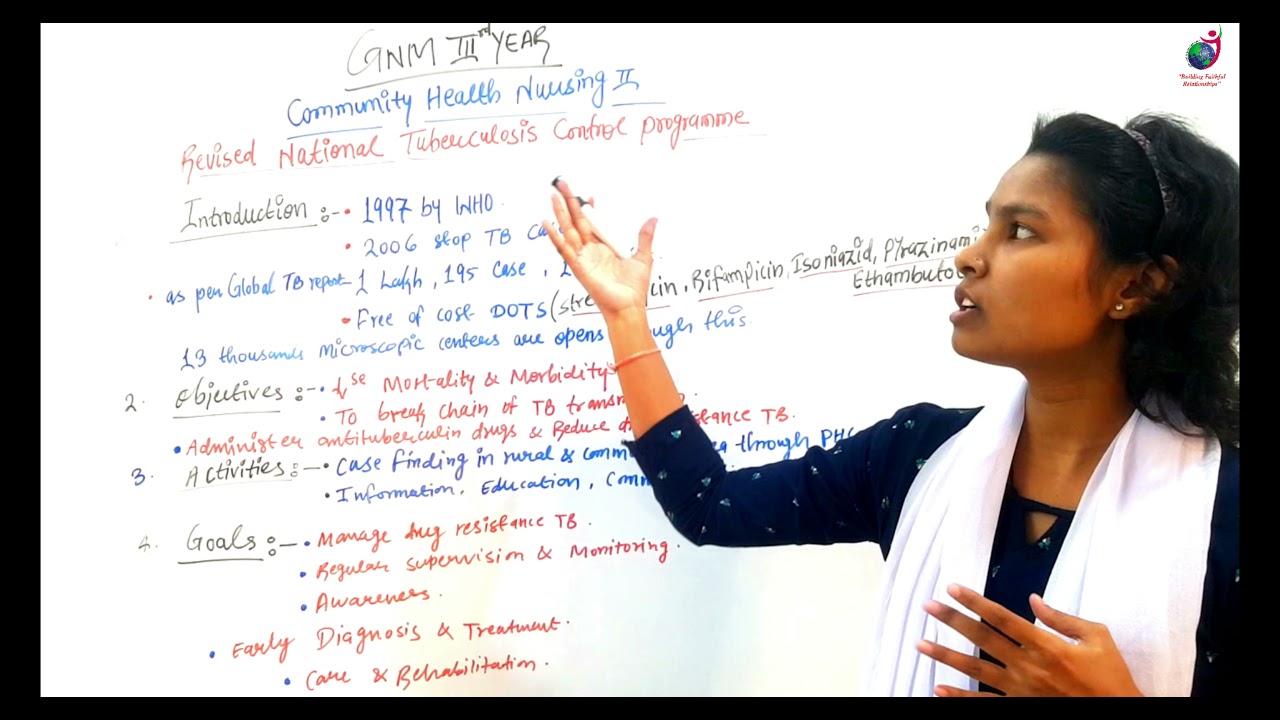 GNM III rd YEAR
Community Health Nuusing II
Revised National Tuberculosis Control programme
Introduction :- • 1997 by WHO.
• 2006 stop TB
• as per Global TB report - 1 Lakh, 195 case,
• Free of cost DOTS (stre cin, Rifampicin, Isoniazid, Pyrazinami
Ethambuto
13 thousands microscopic centers are opens through this.
2. Objectives :- • ↓se Mortality & Morbidity
• To break chain of TB trans
• Administer antituberculin drugs & Reduce d stance TB.
3. Activities :- • Case finding in rural & comm a through PHC
• Information, Education, Comm
4. Goals :- • Manage drug resistance TB.
• Regular supervision & Monitoring.
• Awareners.
• Early Diagnosis & Treatment.
• Care & Rehabilitation.
"Building Faithful
Relationships"